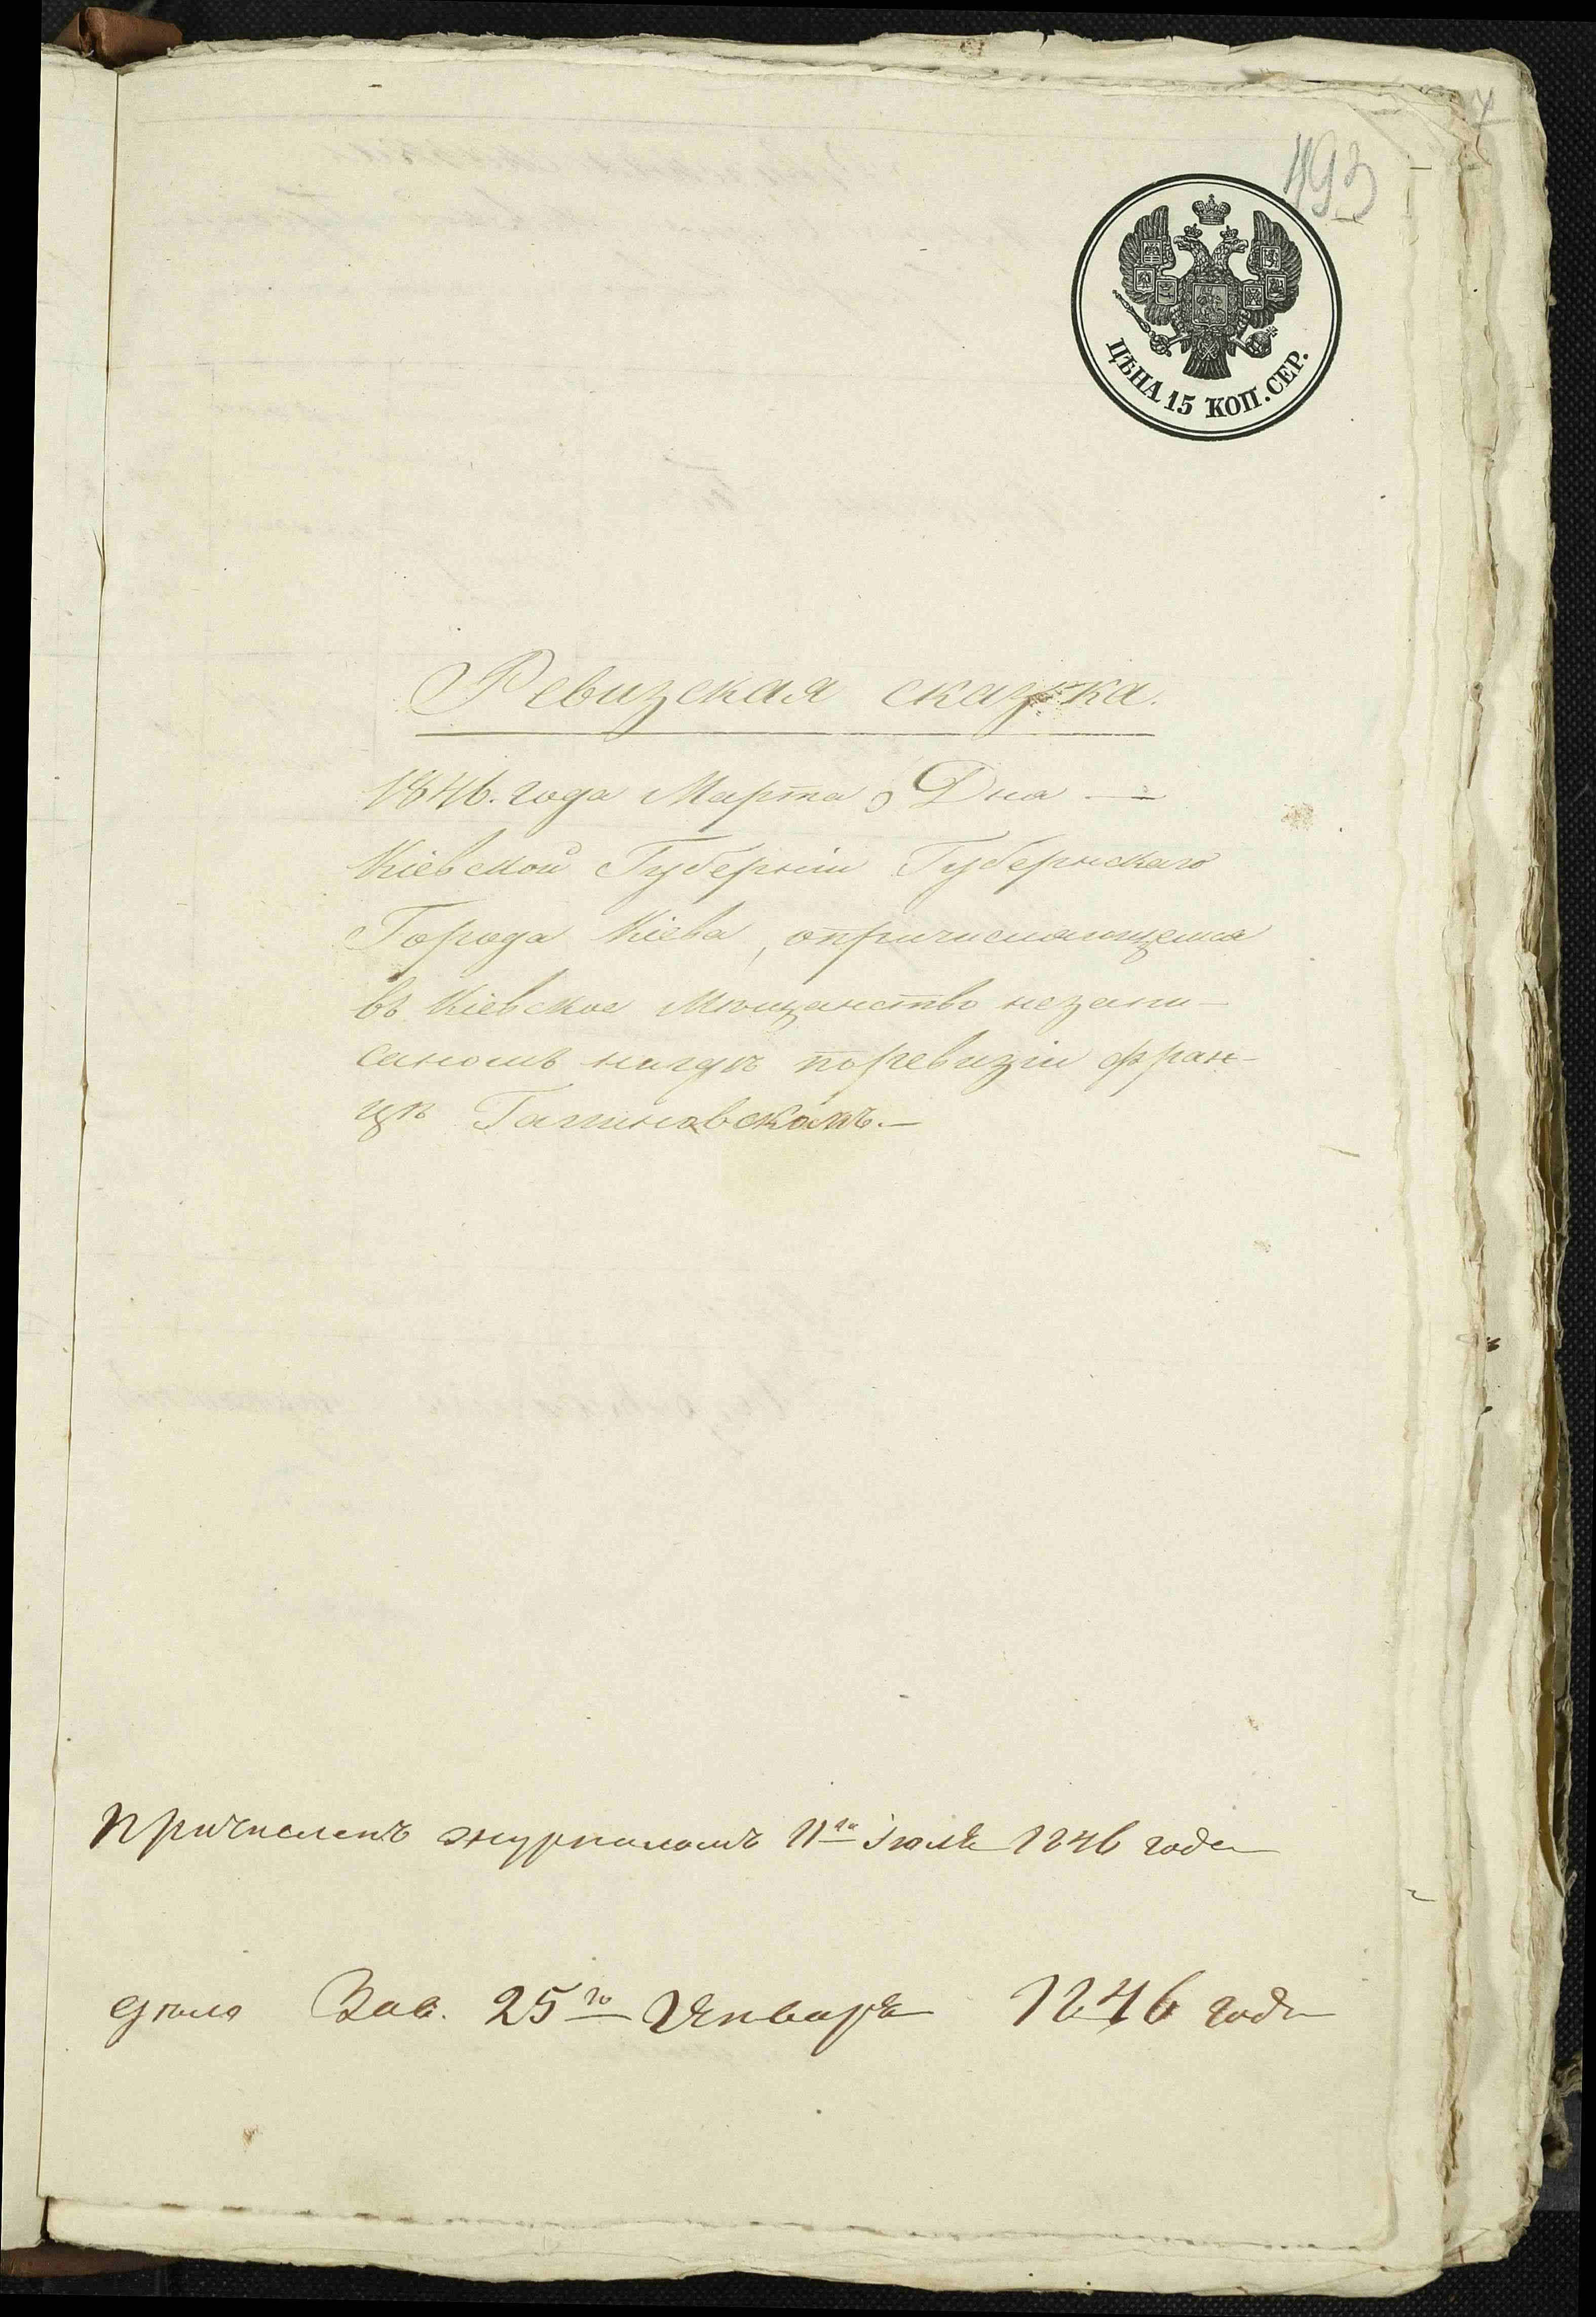 493
ЦѢНА 15 КОП. СЕР.
Ревизская сказка.
1846. года Марта Дня —
Кіевской Губерніи Губернскаго
Города Кіева, опричисляющемся
въ Кіевское Мѣщанство незапи-
саномъ нигдѣ поревизіи Фран-
цѣ Гатиновскомъ.—
Причисленъ журналомъ 11го Іюля 1846 года
дѣло Зав. 25го Января 1846 года